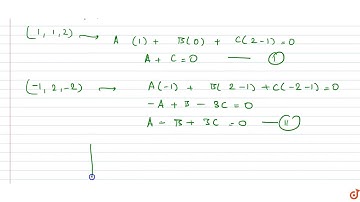 (1, 1, 2) → A (1) + B(0) + C(2-1) = 0
A + C = 0 — I
(-1, 2, -2) → A(-1) + B(2-1) + C(-2-1) = 0
-A + B - 3C = 0
A - B + 3C = 0 — II